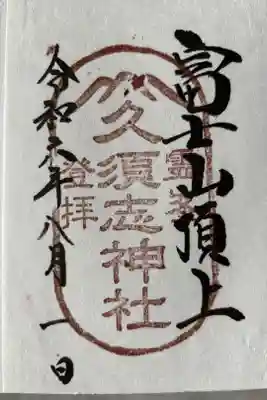 富士山頂上
靈峯
久須志神社
登拝
令和六年八月一日